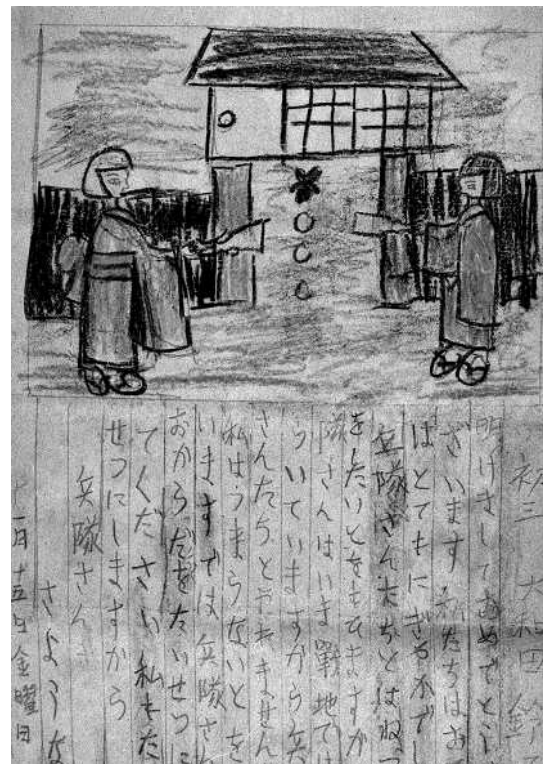 初三 大和田 鈴
明けましておめでとう
ざいます 私たちはお
はとてもにぎやかでし
兵隊さんたちとはねつ
をしたいとをもひますが
隊さんはいま戰地では
らいていますから兵
さんたちとやれません
私はうまらないとを
いますでは兵隊さん
おからだをたいせつに
てください私もた
せつにしますから
兵隊さん
さような
十一月十五日金曜日